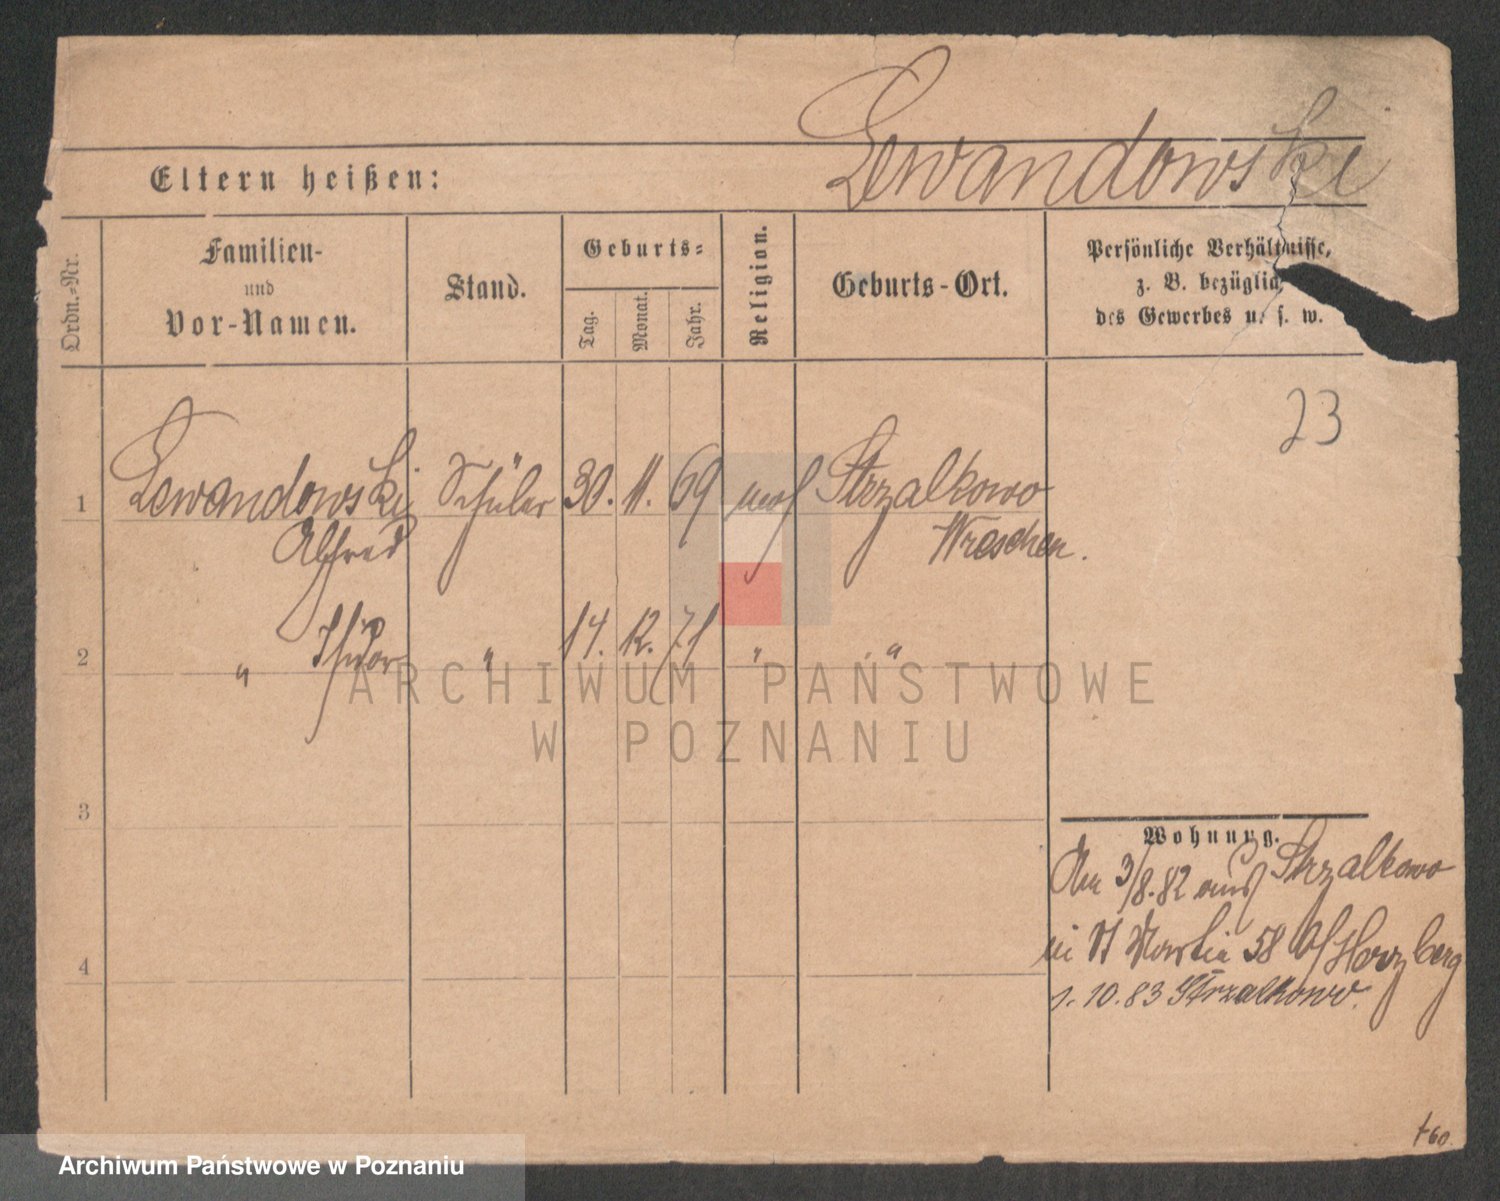 Lewandowski
Eltern heißen:
Ordn.-Nr.
Familien-
und
Vor-Namen.
Stand.
Geburts-
Tag.
Monat.
Jahr.
Religion.
Geburts-Ort.
Persönliche Verhältnisse,
z. B. bezüglich
des Gewerbes u. s. w.
23
1 Lewandowski Schüler 30. 11. 69 mos Strzalkowo
Alfred Wreschen.
2 " Isidor " 14. 12. 71 " "
3
4
ARCHIWUM PAŃSTWOWE
W POZNANIU
Wohnung.
Am 3/8.82 aus Strzalkowo
in St Martin 58 b/Herzberg
1.10.83 Strzalkowo.
+60
Archiwum Państwowe w Poznaniu